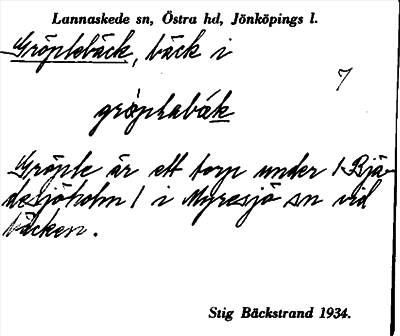 Lannaskede sn, Östra hd, Jönköpings l.
Gröplebäck, bäck i
7
gröplabäk
Gröple är ett torp under / Bjä-
desjöholm / i Myresjö sn vid
bäcken.
Stig Bäckstrand 1934.